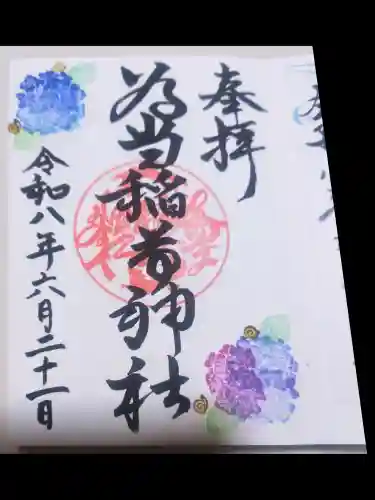 奉拝
為当稲荷神社
令和八年六月二十一日